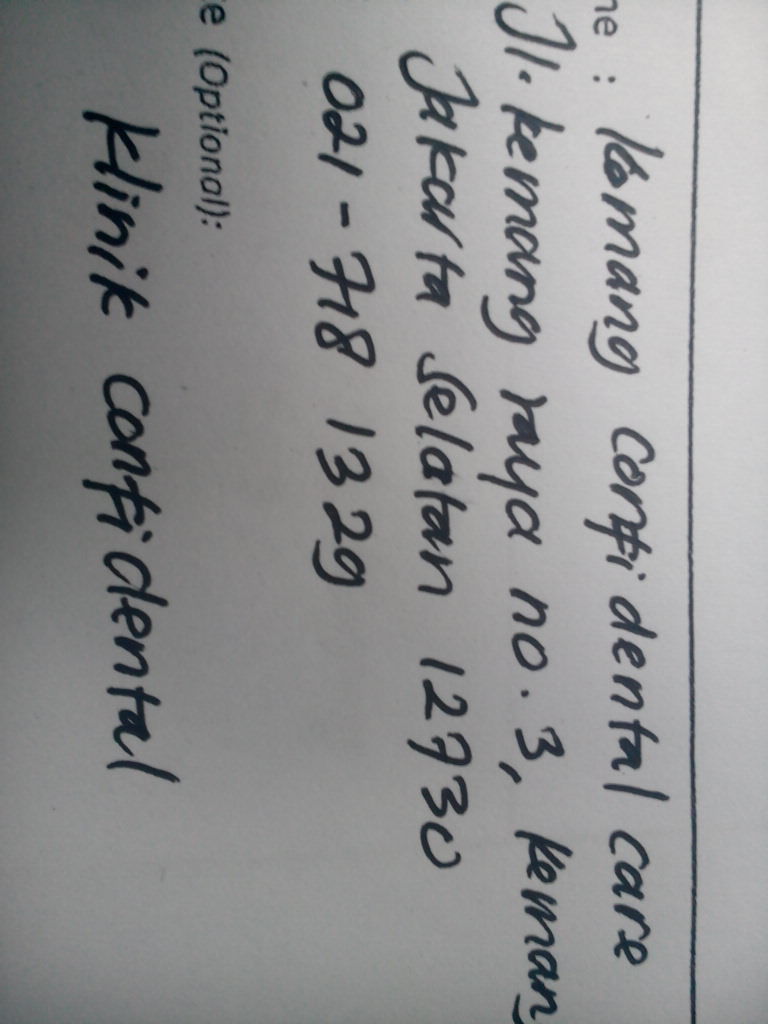 ne : Kemang confidental care
Jl. kemang raya no. 3, keman
Jakarta Selatan 12730
021-718 1329
e (Optional):
Klinik confidental